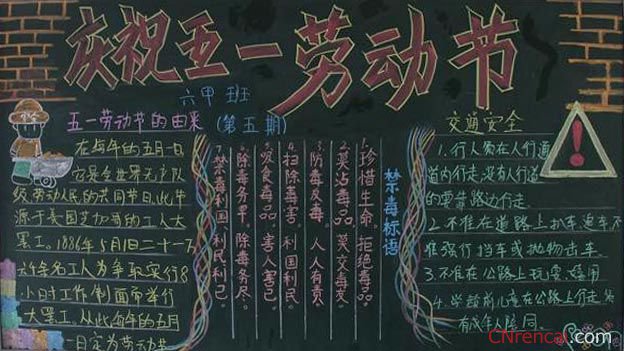 庆祝五一劳动节
六甲班
(第五期)
五一劳动节的由来
在每年的五月一日
它是全世界无产阶
级,劳动人民的共同节日,此节
源于美国芝加哥的工人大
罢工。1886年5月1日二十一万
六千多名工人为争取实行8
小时工作制而举行
大罢工,从此每年的五月
一日定为劳动节
禁毒标语
1.珍惜生命。拒绝毒品。
2.莫沾毒品。莫交毒友。
3.防毒反毒。人人有责。
4.扫除毒害。利国利民。
5.吸食毒品。害人害己。
6.除毒务早。除毒务尽。
7.禁毒利国、利民利己。
交通安全
1.行人需在人行道
道内行走,没有人行道
的要靠路边行走。
2.不准在道路上扒车,追车,不
准强行挡车或抛物击车。
3.不准在公路上玩耍、嬉闹
4.学龄前儿童在公路上行走
有成年人陪同。
CNrencai.com